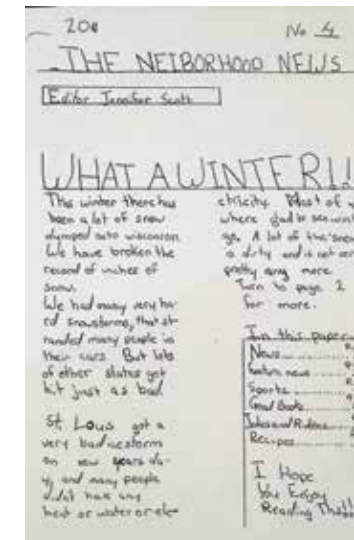 20¢
No 4
THE NEIBORHOOD NEWS
Editor Jennifer Scott
WHAT A WINTER!!
This winter there has
been a lot of snow
dumped onto wisconsin.
We have broken the
record of inches of
snow.
We had many very ha-
rd snowstorms, that st-
randed many people in
their cars. But lots
of other states got
hit just as bad
St Lous got a
very bad icestorm
on new years da-
y, and many people
didn't have any
heat or water or ele-
ctricity. Most of
where glad to see
go. A lot of the
is dirty and is not
pretty any more.
Turn to page 2
for more.
In this paper
News
feature news
Sports
Good Books
Jokes and Riddles
Recipes
I Hope
You Enjoy
Reading This!!